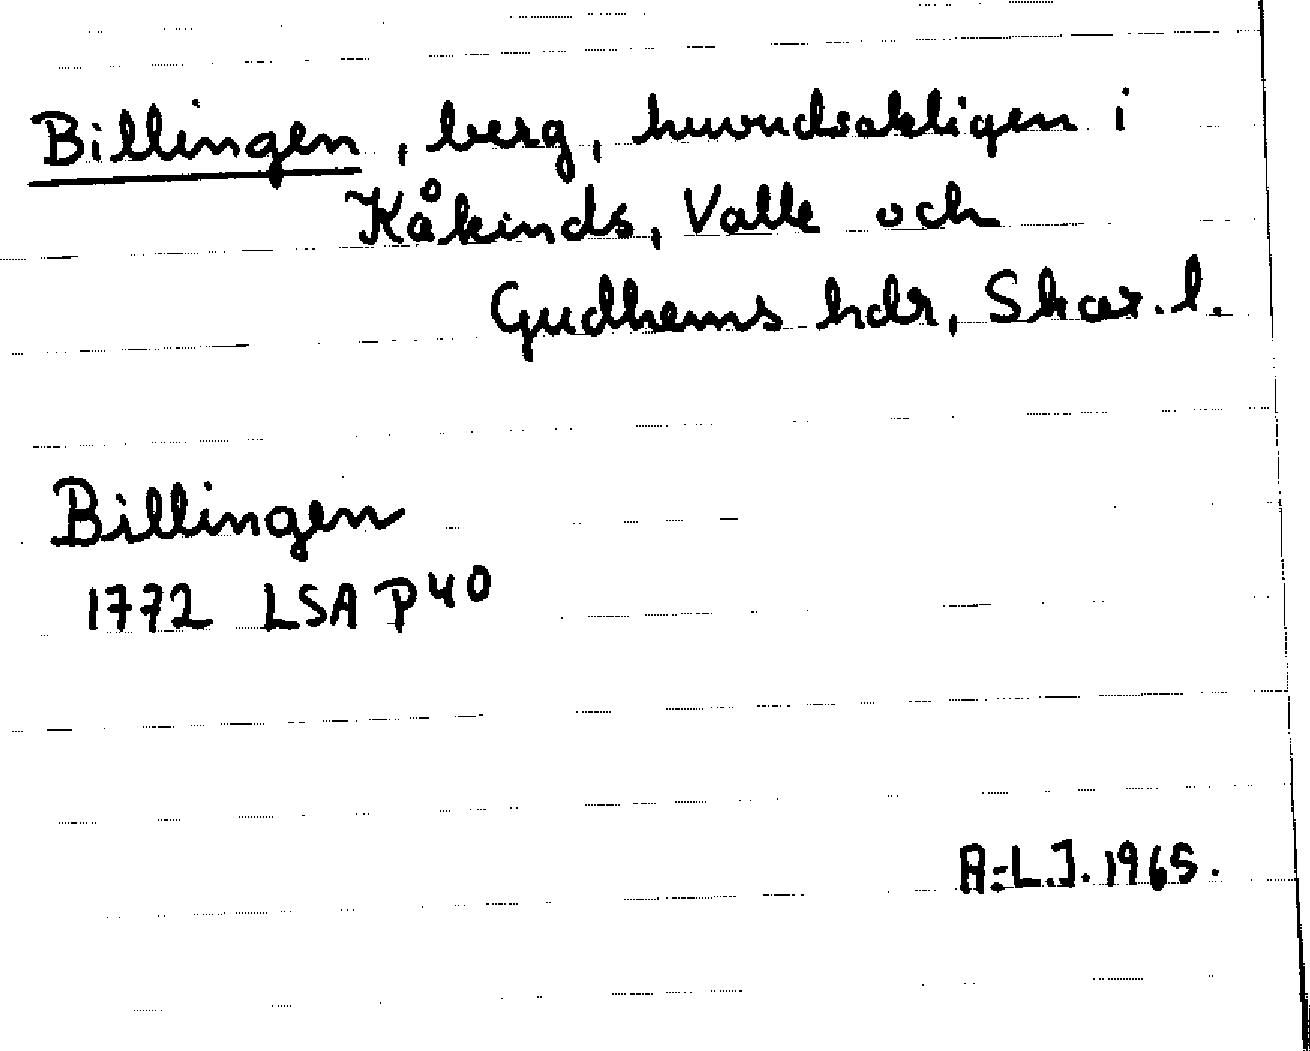 Billingen, berg, huvudsakligen i
Kåkinds, Valle och
Gudhems hdr, Skar. l.
Billingen
1772 LSA P40
A.-L.J. 1965.